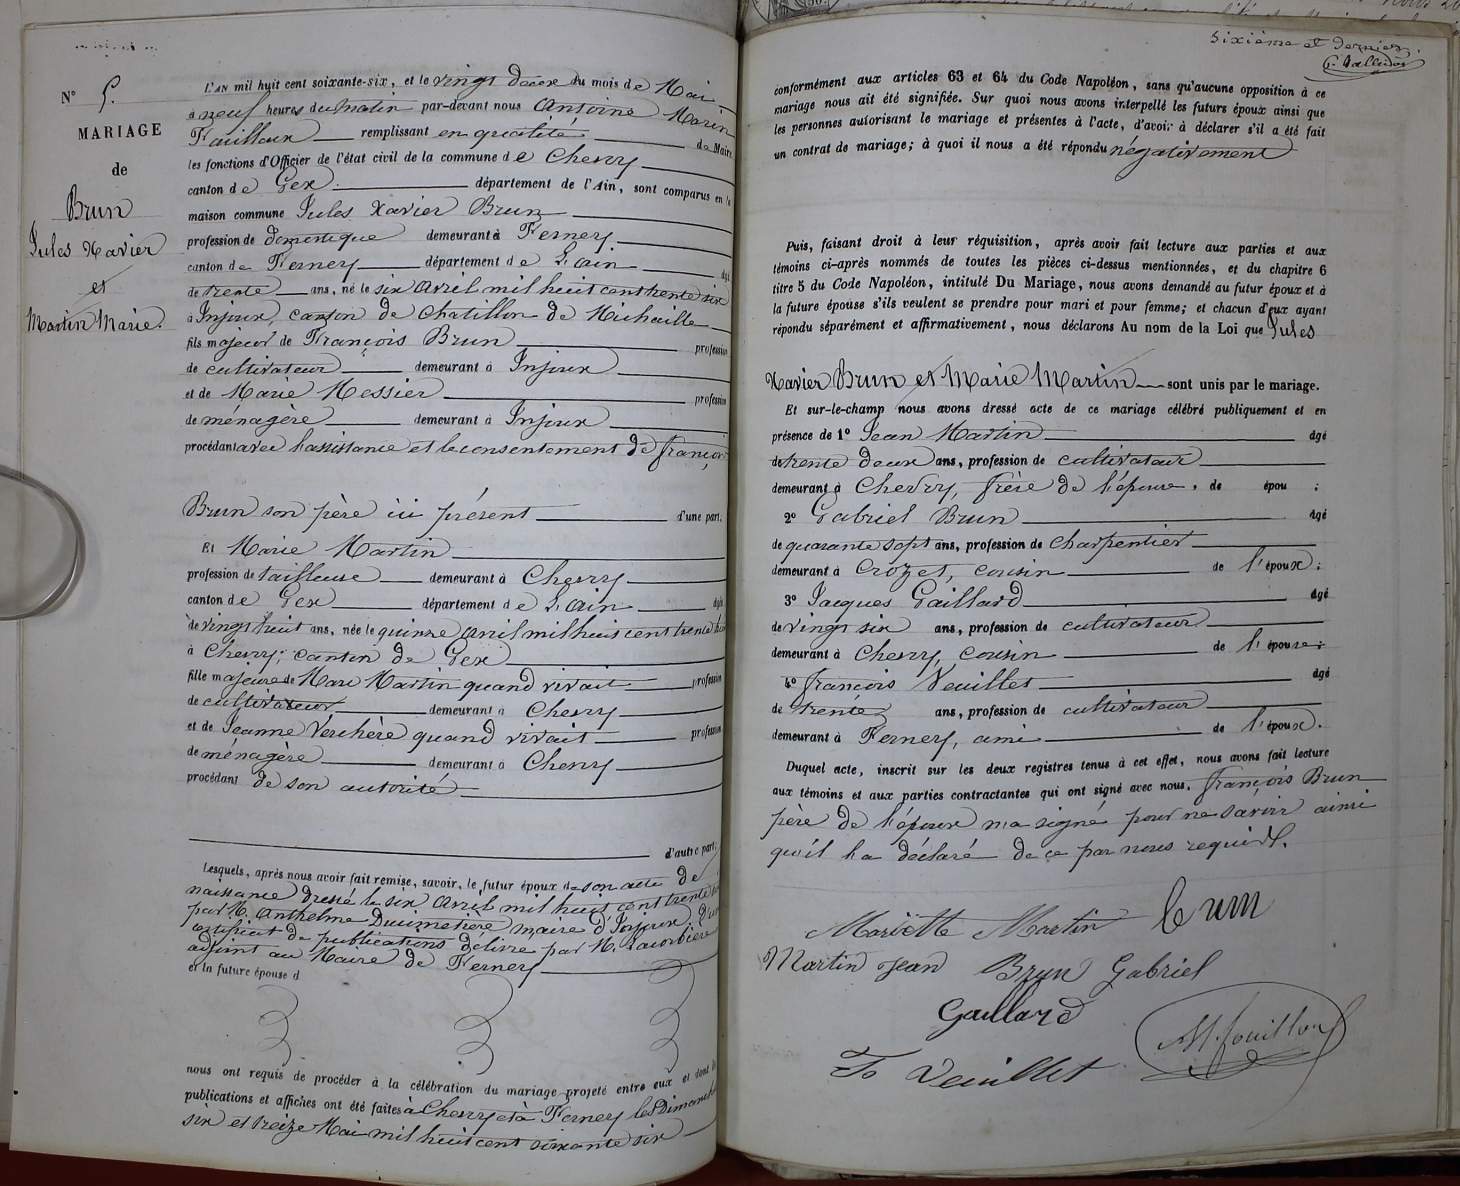 N° 5.
MARIAGE
de
Brun
Jules Xavier
et
Martin Marie.
L'AN mil huit cent soixante-six, et le vingt deux du mois de Mai
à neuf heures du matin par-devant nous Antoine Marin
Fouilloux remplissant en qualité de Maire
les fonctions d'Officier de l'état civil de la commune de Chevry
canton de Gex département de l'Ain, sont comparus en la
maison commune Jules Xavier Brun
profession de domestique demeurant à Ferney
canton de Ferney département de L'ain âgé
de trente ans, né le six avril mil huit cent trente six
à Injoux, canton de Chatillon de Michaille
fils majeur de François Brun profession
de cultivateur demeurant à Injoux
et de Marie Messier profession
de ménagère demeurant à Injoux
procédant avec l'assistance et le consentement de françois
Brun son père ici présent d'une part;
Et Marie Martin
profession de tailleuse demeurant à Chevry
canton de Gex département de L'ain âgée
de vingt huit ans, née le quinze avril mil huit cent trente huit
à Chevry; canton de Gex
fille majeure de Marc Martin quand vivait profession
de cultivateur demeurant à Chevry
et de Jeanne Verchère quand vivait profession
de ménagère demeurant à Chevry
procédant de son autorité
d'autre part;
Lesquels, après nous avoir fait remise, savoir, le futur époux de son acte de
naissance dressé le six avril mil huit cent trente six
par M. Anthelme maire d'Injoux, d'un
certificat de publications délivré par M. Lacorbière
adjoint au Maire de Ferney
et la future épouse d
nous ont requis de procéder à la célébration du mariage projeté entre eux et dont les
publications et affiches ont été faites à Chevry et à Ferney les Dimanches
six et treize Mai mil huit cent soixante six
Sixième et dernier.
conformément aux articles 63 et 64 du Code Napoléon, sans qu'aucune opposition à ce
mariage nous ait été signifiée. Sur quoi nous avons interpellé les futurs époux ainsi que
les personnes autorisant le mariage et présentes à l'acte, d'avoir à déclarer s'il a été fait
un contrat de mariage; à quoi il nous a été répondu négativement
Puis, faisant droit à leur réquisition, après avoir fait lecture aux parties et aux
témoins ci-après nommés de toutes les pièces ci-dessus mentionnées, et du chapitre 6
titre 5 du Code Napoléon, intitulé Du Mariage, nous avons demandé au futur époux et à
la future épouse s'ils veulent se prendre pour mari et pour femme; et chacun d'eux ayant
répondu séparément et affirmativement, nous déclarons Au nom de la Loi que Jules
Xavier Brun et Marie Martin sont unis par le mariage.
Et sur-le-champ nous avons dressé acte de ce mariage célébré publiquement et en
présence de 1° Jean Martin âgé
de trente deux ans, profession de cultivateur
demeurant à Chevry, frère de l'épouse, de épou ;
2° Gabriel Brun âgé
de quarante sept ans, profession de Charpentier
demeurant à Crozet, cousin de l'époux;
3° Jacques Gaillard âgé
de vingt six ans, profession de cultivateur
demeurant à Chevry, cousin de l'épouse;
4° françois Veuillet âgé
de trente ans, profession de cultivateur
demeurant à Ferney, ami de l'époux.
Duquel acte, inscrit sur les deux registres tenus à cet effet, nous avons fait lecture
aux témoins et aux parties contractantes qui ont signé avec nous, françois Brun
père de l'époux n'a signé pour ne savoir ainsi
qu'il l'a déclaré de ce par nous requis.
Mariette Martin Brun
Martin Jean Brun Gabriel
Gaillard
Fs Veuillet AM. fouilloux